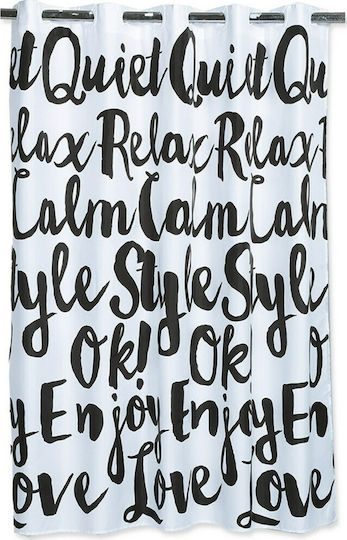 et Quiet Quiet Qu
elax Relax Relax
Calm Calm Calm
Style Style Style
Ok! Ok
y Enjoy Enjoy
Love Love Love